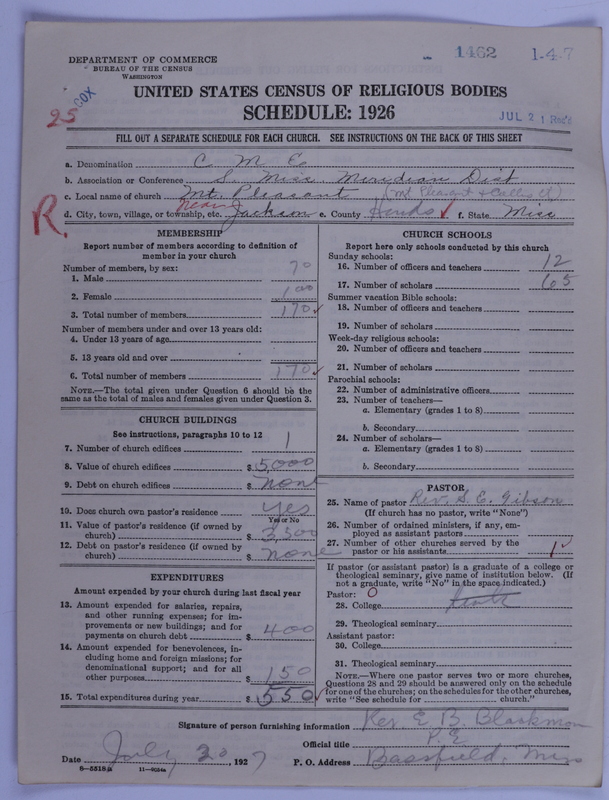 1462 1-4-7
DEPARTMENT OF COMMERCE
BUREAU OF THE CENSUS
WASHINGTON
25 COX
UNITED STATES CENSUS OF RELIGIOUS BODIES
SCHEDULE: 1926
JUL 21 Rec'd
FILL OUT A SEPARATE SCHEDULE FOR EACH CHURCH. SEE INSTRUCTIONS ON THE BACK OF THIS SHEET
a. Denomination C M E
b. Association or Conference S. Miss. Meridian Dist
c. Local name of church Mt. Pleasant (Mt Pleasant &
R. near
d. City, town, village, or township, etc. Jackson e. County Hinds ✓ f. State Miss
MEMBERSHIP
Report number of members according to definition of
member in your church
Number of members, by sex:
1. Male 70
2. Female 100
3. Total number of members 170 ✓
Number of members under and over 13 years old:
4. Under 13 years of age
5. 13 years old and over
6. Total number of members 170 ✓
NOTE.—The total given under Question 6 should be the
same as the total of males and females given under Question 3.
CHURCH BUILDINGS
See instructions, paragraphs 10 to 12
7. Number of church edifices 1
8. Value of church edifices $ 5,000
9. Debt on church edifices $ none
10. Does church own pastor's residence? yes
Yes or No
11. Value of pastor's residence (if owned by
church) $ 3,500
12. Debt on pastor's residence (if owned by
church) $ none
EXPENDITURES
Amount expended by your church during last fiscal year
13. Amount expended for salaries, repairs,
and other running expenses; for im-
provements or new buildings; and for
payments on church debt $ 400
14. Amount expended for benevolences, in-
cluding home and foreign missions; for
denominational support; and for all
other purposes $ 150
15. Total expenditures during year $ 550 ✓
CHURCH SCHOOLS
Report here only schools conducted by this church
Sunday schools:
16. Number of officers and teachers 12
17. Number of scholars 65
Summer vacation Bible schools:
18. Number of officers and teachers
19. Number of scholars
Week-day religious schools:
20. Number of officers and teachers
21. Number of scholars
Parochial schools:
22. Number of administrative officers
23. Number of teachers—
a. Elementary (grades 1 to 8)
b. Secondary
24. Number of scholars—
a. Elementary (grades 1 to 8)
b. Secondary
PASTOR
25. Name of pastor Rev. S. E. Gibson
(If church has no pastor, write "None")
26. Number of ordained ministers, if any, em-
ployed as assistant pastors
27. Number of other churches served by the
pastor or his assistants 1 ✓
If pastor (or assistant pastor) is a graduate of a college or
theological seminary, give name of institution below. (If
not a graduate, write "No" in the space indicated.)
Pastor: O
28. College
29. Theological seminary
Assistant pastor:
30. College
31. Theological seminary
NOTE.—Where one pastor serves two or more churches,
Questions 28 and 29 should be answered only on the schedule
for one of the churches; on the schedules for the other churches,
write "See schedule for church."
Signature of person furnishing information Rev E. B. Blackmon
Official title P. E.
Date July 20, 1927 P. O. Address Bassfield, Miss
8—5518a 11—9054a